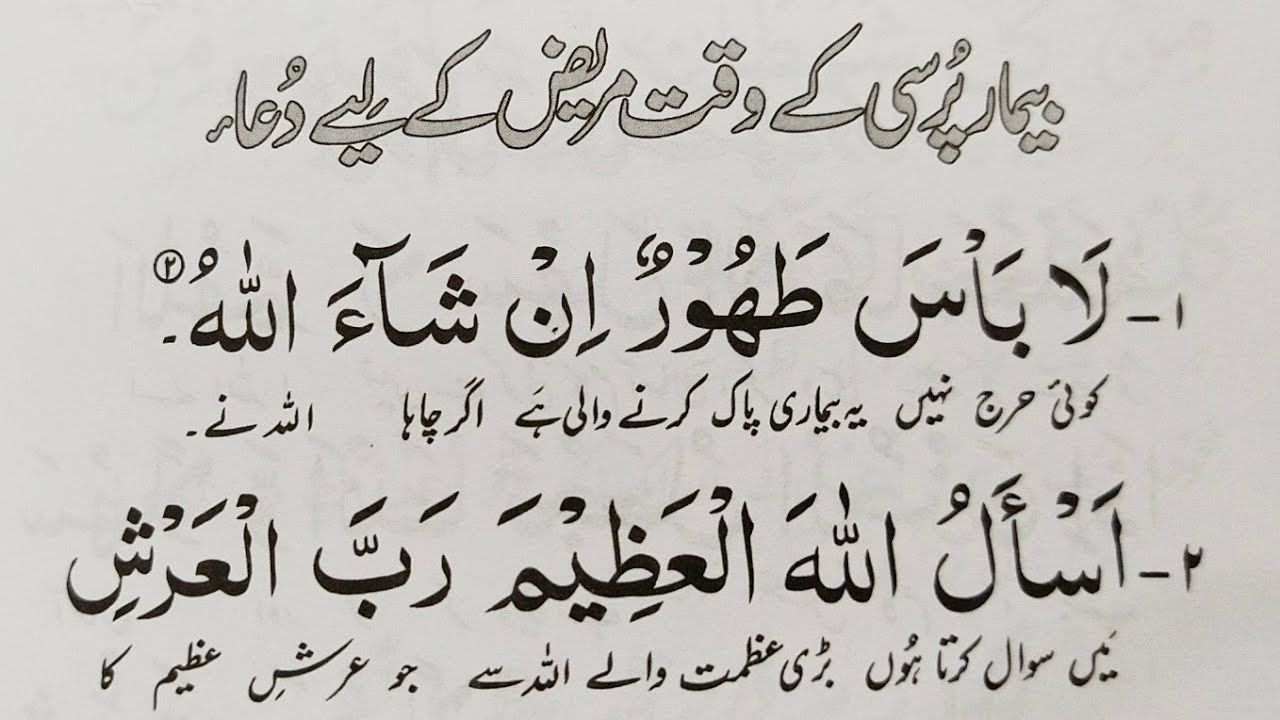 بیمار پُرسی کے وقت مریض کے لیے دُعاء
۱- لَا بَاْسَ طَهُوْرٌ اِنْ شَآءَ اللّٰهُ۔ ②
کوئی حرج نہیں یہ بیماری پاک کرنے والی ہَے اگر چاہا اللہ نے۔
۲- اَسْأَلُ اللّٰهَ الْعَظِيْمَ رَبَّ الْعَرْشِ
مَیں سوال کرتا ہُوں بڑی عظمت والے اللہ سے جو عرشِ عظیم کا